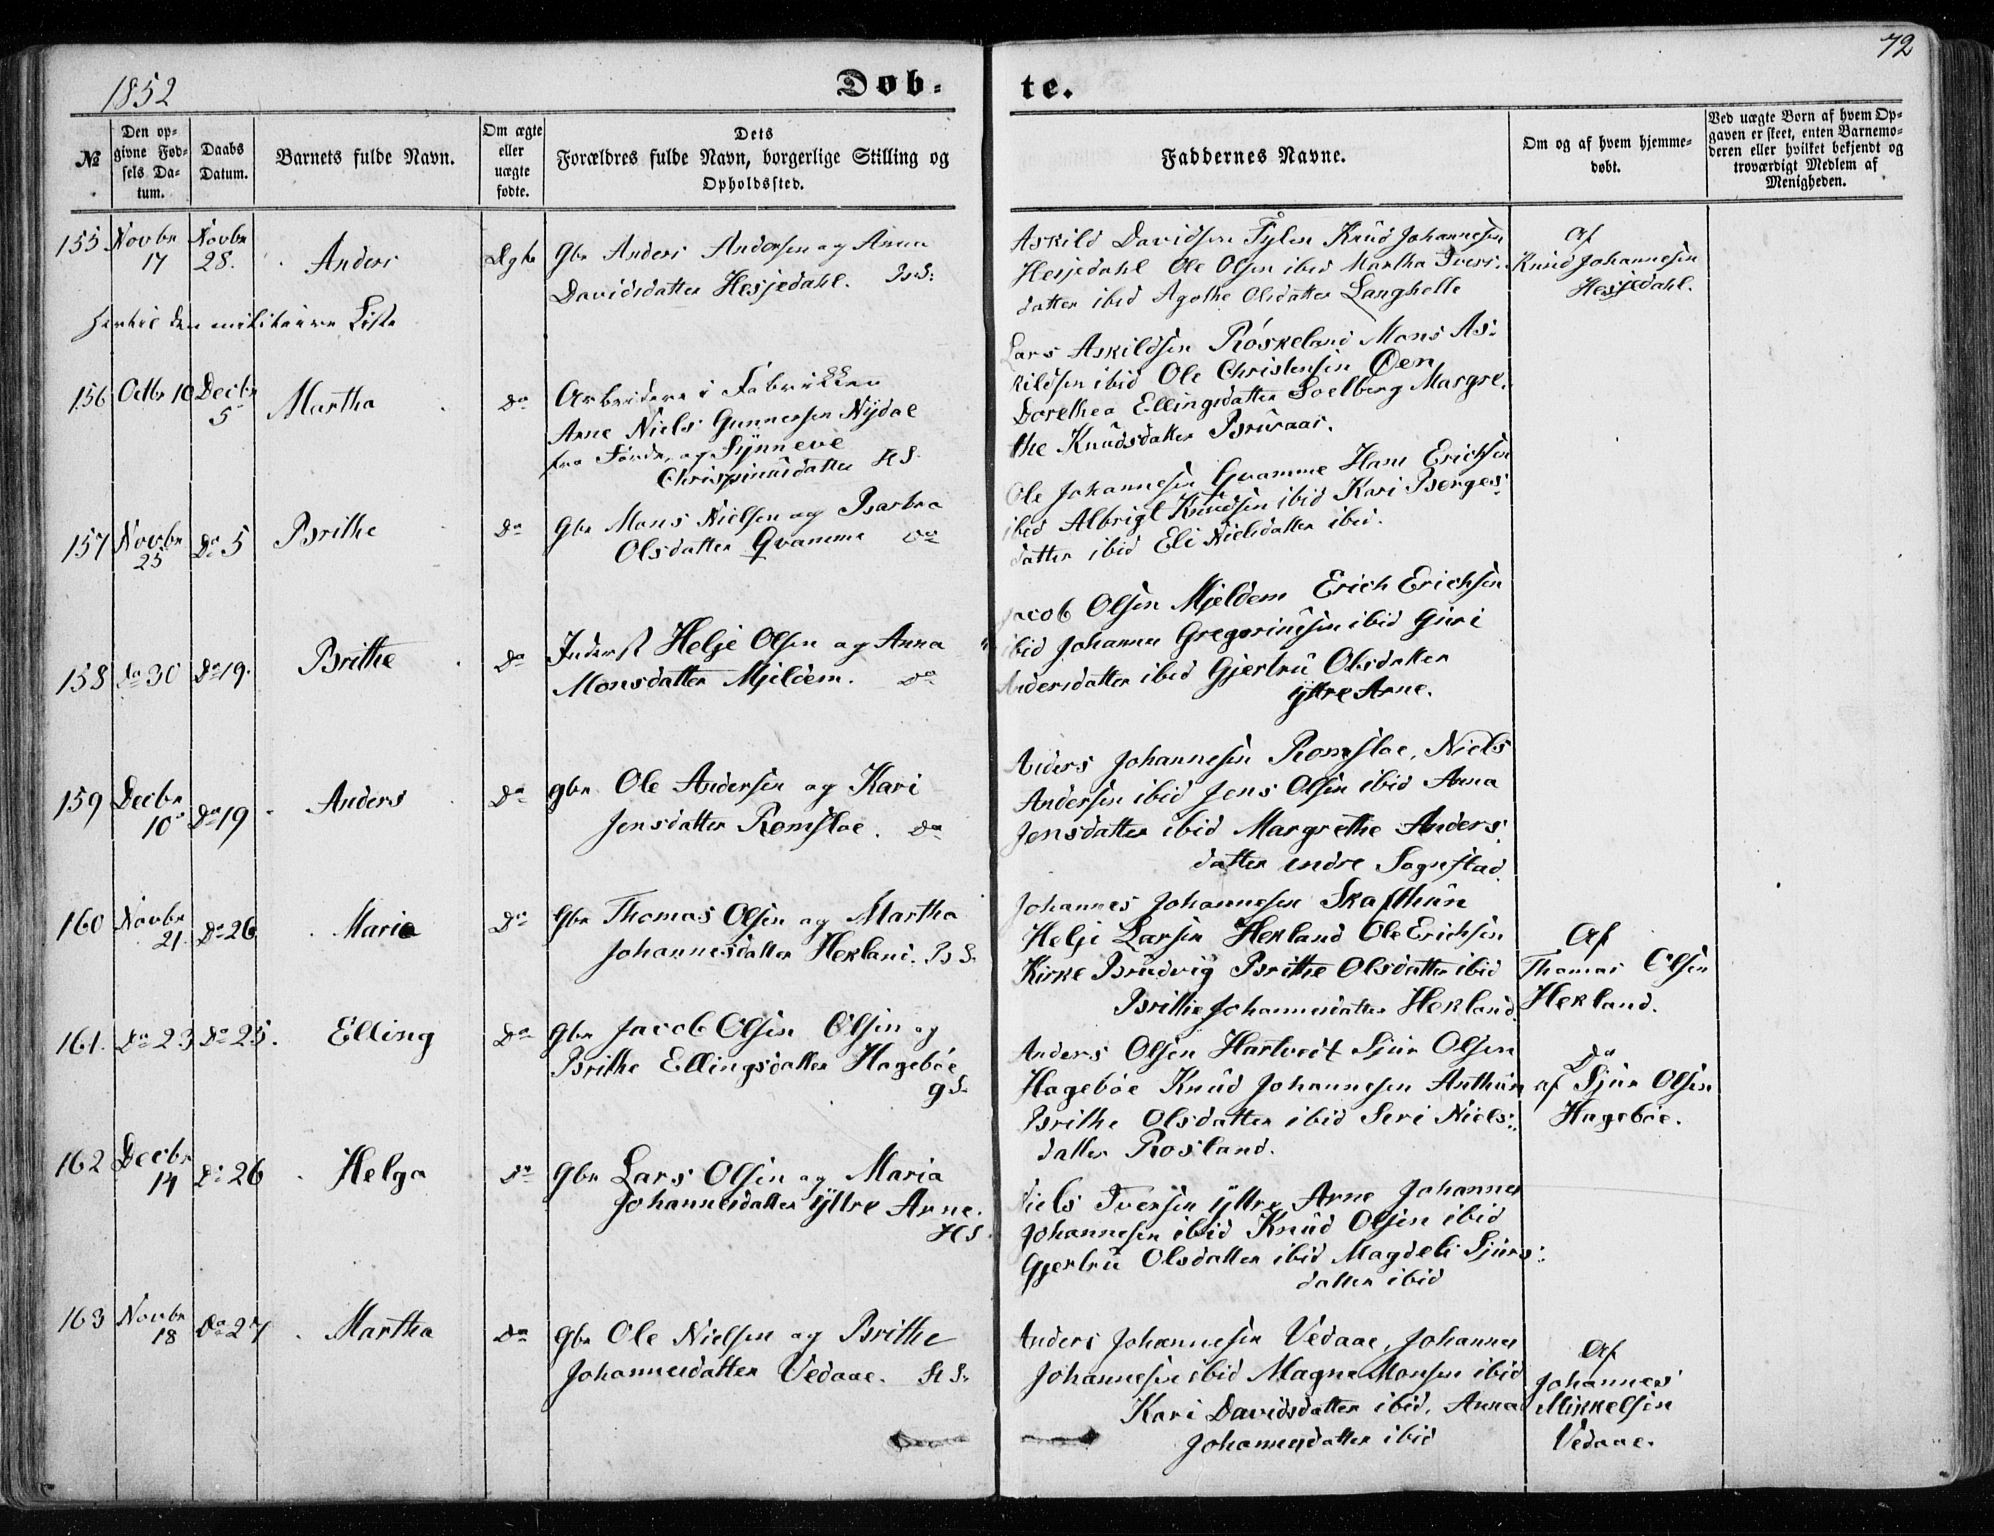 72
1852
Døb-
te.
№
Den op-
givne Fød-
sels Da-
tum.
Daabs
Datum.
Barnets fulde Navn.
Om ægte
eller
uægte
fødte.
Dets
Forældres fulde Navn, borgerlige Stilling og
Opholdssted.
Faddernes Navne.
Om og af hvem hjemme-
døbt.
Ved uægte Børn af hvem Op-
gaven er skeet, enten Barnemo-
deren eller hvilket bekjendt og
troværdigt Medlem af
Menigheden.
155 Novbr
17
Novbr
28.
Anders
Ægte
Gbr Anders Andersen og Anna
Davidsdatter Hesjedahl. B.S.
Askild Davidsen Fylen Knud Johannesen
Hesjedahl Ole Olsen ibid Martha Ivers-
datter ibid Agothe Olsdatter Langhelle
Af
Knud Johannesen
Hesjedahl.
hertil den militaire Liste
156 Octbr 10 Decbr
5
Martha
Do
Arbeidere i Fabrikken
Arne Niels Gunnersen Nydal
fra Førde, og Synneve
Chrispinusdatter H S.
Lars Askildsen Røskeland Mons As-
kildsen ibid Ole Christensen Øen
Dorethea Ellingsdatter Soelberg Margre-
the Knudsdatter Bruraas.
157 Novbr
25
Do 5
Brithe
Do
Gbr Mons Nielsen og Barbra
Olsdatter Qvamme do
Ole Johannesen Qvamme Hans Erichsen
ibid Albrigt Knudsen ibid Kari Berges-
datter ibid Eli Nielsdatter ibid.
158 do 30 Do 19.
Brithe
Do
Inderst Helje Olsen og Anna
Monsdatter Mjeldem. Do
Jacob Olsen Mjeldem Erich Erichsen
ibid Johanne Gregoriusen ibid Guri
Andersdatter ibid Gjertru Olsdatter
Yttre Arne.
159 Decbr
10
Do 19
Anders
Do
gbr Ole Andersen og Kari
Jensdatter Romsloe. Do
Anders Johannesen Romsloe, Niels
Andersen ibid Jens Olsen ibid Anna
Jensdatter ibid Margrethe Anders-
datter indre Sognstad.
160 Novbr
21.
Do 26
Maria
Do
Gbr Thomas Olsen og Martha
Johannesdatter Herland. B S.
Johannes Johannesen Skafthun
Helje Larsen Herland Ole Erichsen
Kirke Brudvig Brithe Olsdatter ibid
Brithe Johannesdatter Herland.
Af
Thomas Olsen
Herland.
161. Do 23 Do 25.
Elling
Do
Gbr Jacob Olsen Olsen og
Brithe Ellingsdatter Hagebøe
g S.
Anders Olsen Hartvedt Sjur Olsen
Hagebøe Knud Johannesen Anthun
Brithe Olsdatter ibid Seri Niels-
datter Rosland.
Do
af Sjur Olsen
Hagebøe.
162 Decbr
14
Do 26
Helga
Do
Gbr Lars Olsen og Maria
Johannesdatter Yttre Arne.
H S.
Niels Iversen Yttre Arne Johannes
Johannesen ibid Knud Olsen ibid
Gjertru Olsdatter ibid Magdeli Sjurs-
datter ibid
163 Novbr
18
Do 27
Martha
Do
Gbr Ole Nielsen og Brithe
Johannesdatter Vedaae. H S.
Anders Johannesen Vedaae, Johannes
Johannesen ibid Magne Monsen ibid
Kari Davidsdatter ibid. Anna
Johannesdatter ibid
Af
Johannes
Mikkelsen
Vedaae.